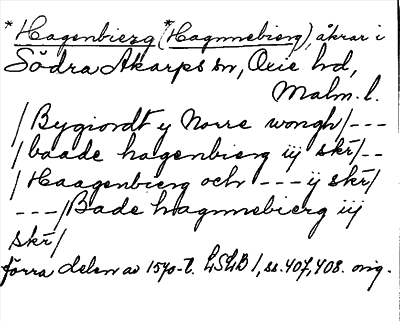 *Hagenbierg (*Hagnnebierg), åkrar i
Södra Åkarps sn, Oxie hd,
Malm. l.
/Bygiordt y Norre wongh/---
/baade hagenbierg iij skr/--
/Haagenbierg och --- ij skr/
---/Bade hagnnebierg iij
skr/
förra delen av 1570-t. LSLB 1, ss. 407, 408. orig.